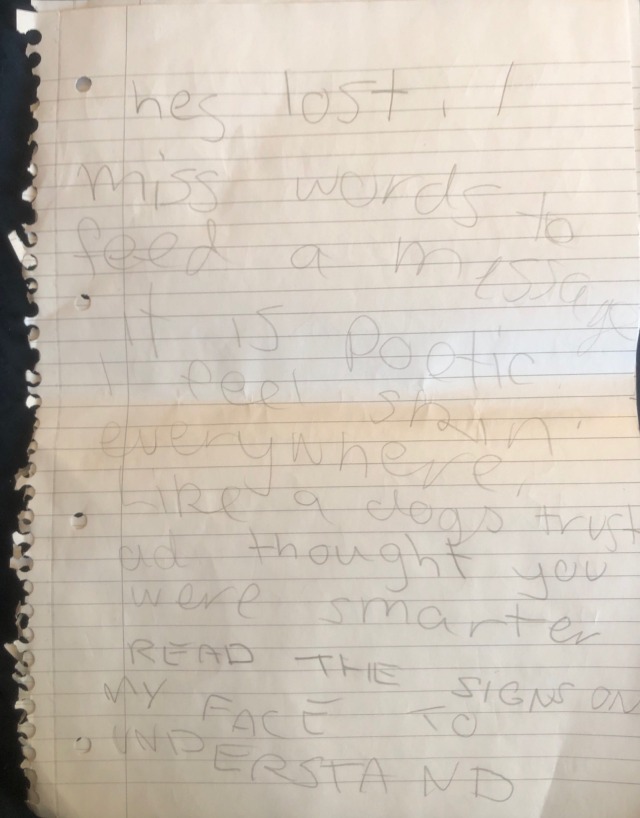 hes lost. I
miss words to
feed a message
It is Poetic
I feel skin
everywhere.
Like a dogs trust
ad thought you
were smarter
READ THE SIGNS ON
MY FACE TO
UNDERSTAND